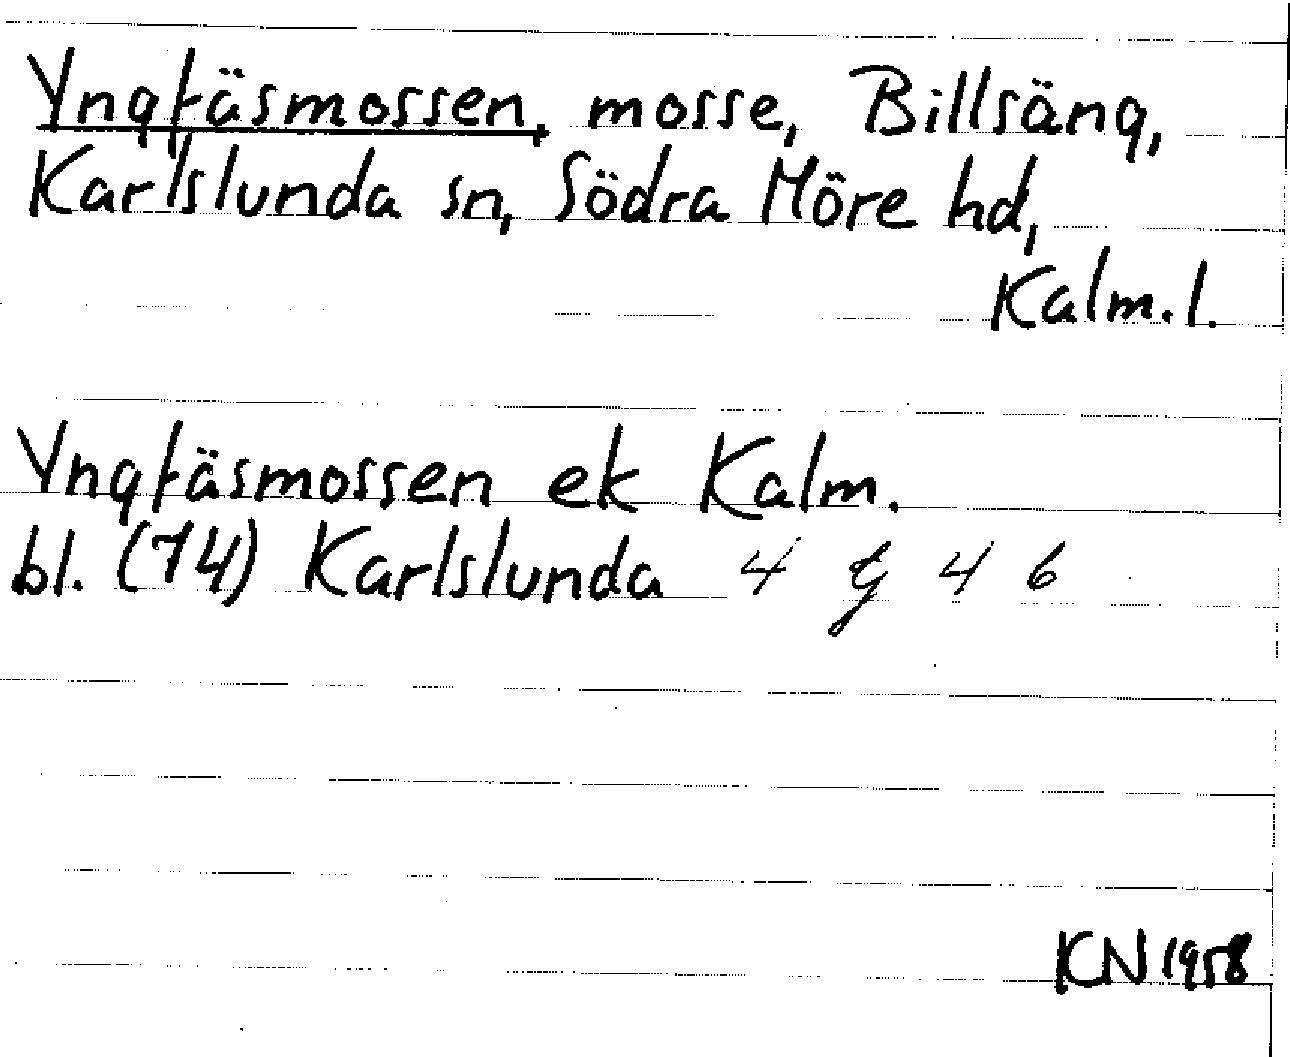 Yngtäsmossen, mosse, Billsäng,
Karlslunda sn, Södra Möre hd,
Kalm. l.
Yngtäsmossen ek Kalm.
bl. (74) Karlslunda 4 G 4 6
KN 1958